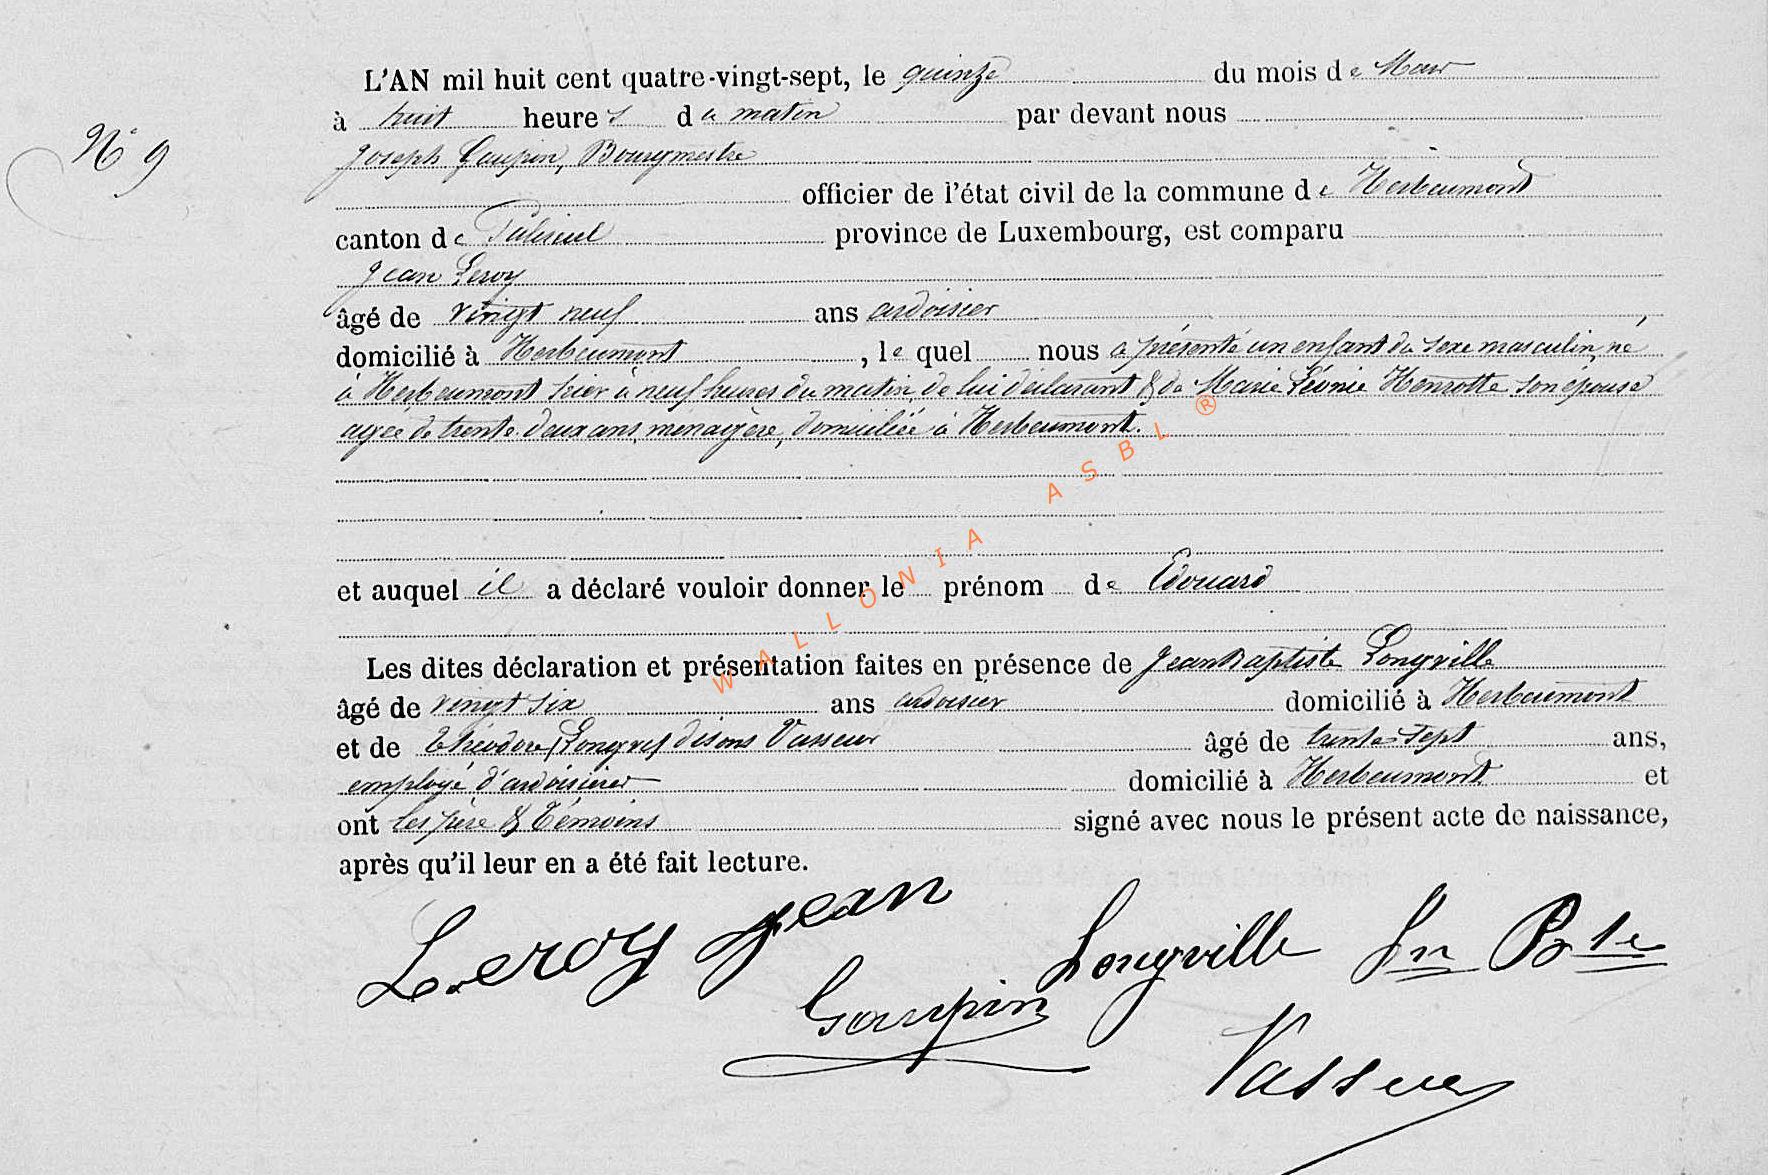 L'AN mil huit cent quatre-vingt-sept, le quinze du mois de Mars
à huit heures du matin par devant nous
N° 9
Joseph Goupin, Bourgmestre
officier de l'état civil de la commune de Herbeumont
canton de Paliseul province de Luxembourg, est comparu
Jean Leroy
âgé de vingt neuf ans ardoisier,
domicilié à Herbeumont, lequel nous a présenté un enfant du sexe masculin, né
à Herbeumont hier à neuf heures du matin, de lui déclarant & de Marie Léonie Henrotte son épouse
agée de trente-deux ans, ménagère, domiciliée à Herbeumont.
WALLONIA ASBL ®
et auquel il a déclaré vouloir donner le prénom de Edouard
Les dites déclaration et présentation faites en présence de Jean Baptiste Longville
âgé de vingt six ans ardoisier domicilié à Herbeumont
et de Théodore disons Vasseur âgé de trente-sept ans,
employé d'ardoisières domicilié à Herbeumont et
ont les père & témoins signé avec nous le présent acte de naissance,
après qu'il leur en a été fait lecture.
Leroy Jean
Longville Jn Bte
Goupin
Vasseur